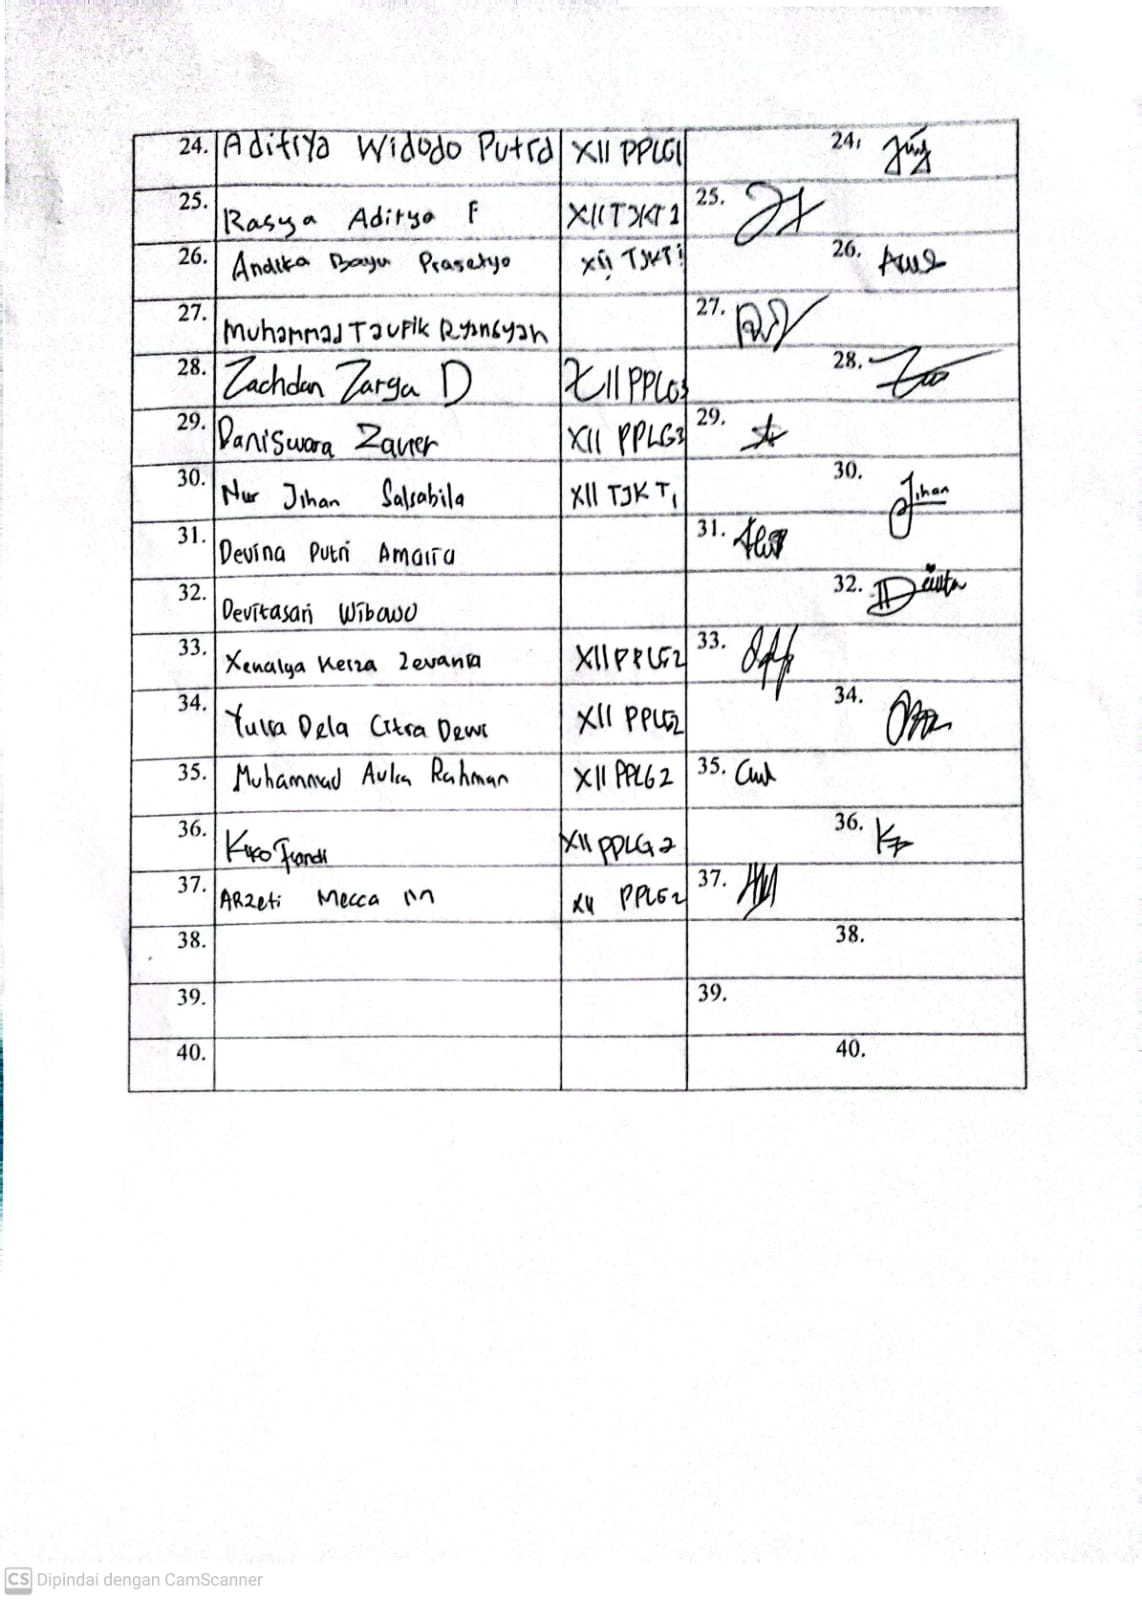 24. Aditiya Widodo Putra XII PPLG1 24.
25. Rasya Aditya F XII TJKT 1 25.
26. Andika Bayu Prasetyo XII TJKT 1 26.
27. Muhammad Taufik Ryansyah 27.
28. Zachdan Zarga D XII PPLG3 28.
29. Daniswara Zaner XII PPLG3 29.
30. Nur Jihan Salsabila XII TJKT 1 30. Jihan
31. Devina Putri Amaira 31.
32. Devitasari Wibowo 32.
33. Xenalya Keiza Zevania XII PPLG2 33.
34. Yulia Dela Citra Dewi XII PPLG2 34.
35. Muhammad Aulia Rahman XII PPLG 2 35.
36. Kiko XII PPLG 2 36.
37. ARzeti Mecca XII PPLG 2 37.
38. 38.
39. 39.
40. 40.
CS Dipindai dengan CamScanner